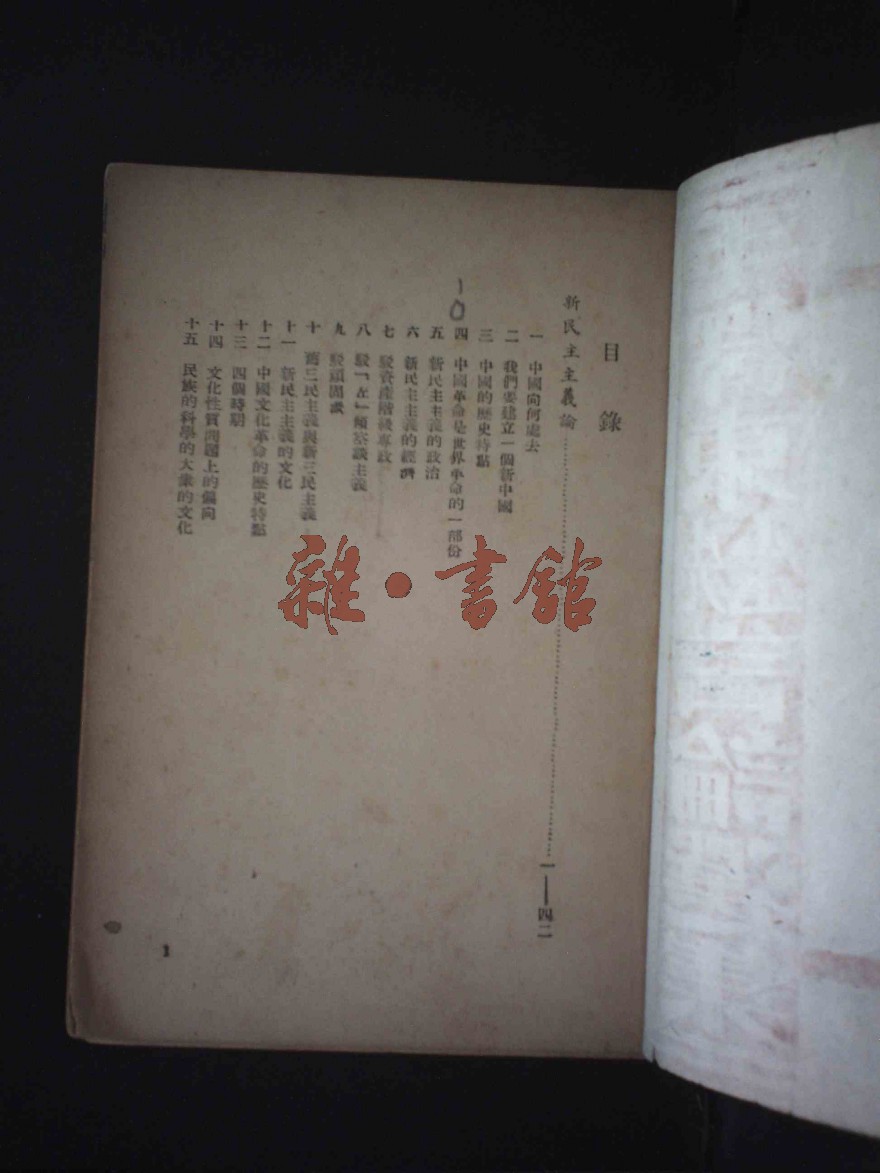 目錄
新民主主義論……………一——四二
一 中國向何處去
二 我們要建立一個新中國
三 中國的歷史特點
四 中國革命是世界革命的一部份
五 新民主主義的政治
六 新民主主義的經濟
七 駁資產階級專政
八 駁「左」傾空談主義
九 駁頑固派
十 舊三民主義與新三民主義
十一 新民主主義的文化
十二 中國文化革命的歷史特點
十三 四個時期
十四 文化性質問題上的偏向
十五 民族的科學的大衆的文化
10
1
雜·書館